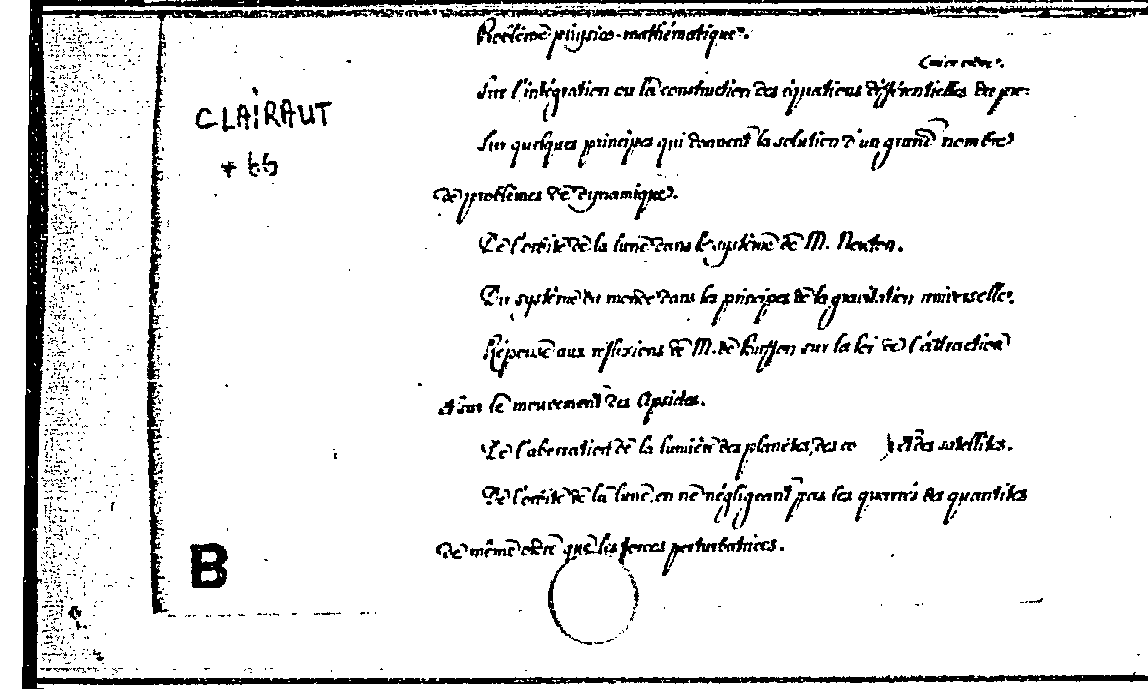 Problème physico-mathématique.
Sur l'intégration ou la construction des équations différentielles du pre:
mier ordre.
CLAIRAUT
* 65
Sur quelques principes qui donnent la solution d'un grand nombre
de problèmes de dynamique.
De l'orbite de la lune dans le système de M. Newton.
Du système du monde dans les principes de la gravitation universelle.
Réponse aux réflexions de M. de Buffon sur la loi de l'attraction
et sur le mouvement des Apsides.
De l'aberration de la lumière des planètes, des co et des satellites.
De l'orbite de la lune, en ne négligeant pas les quarrés des quantités
de même ordre que les forces perturbatrices.
B